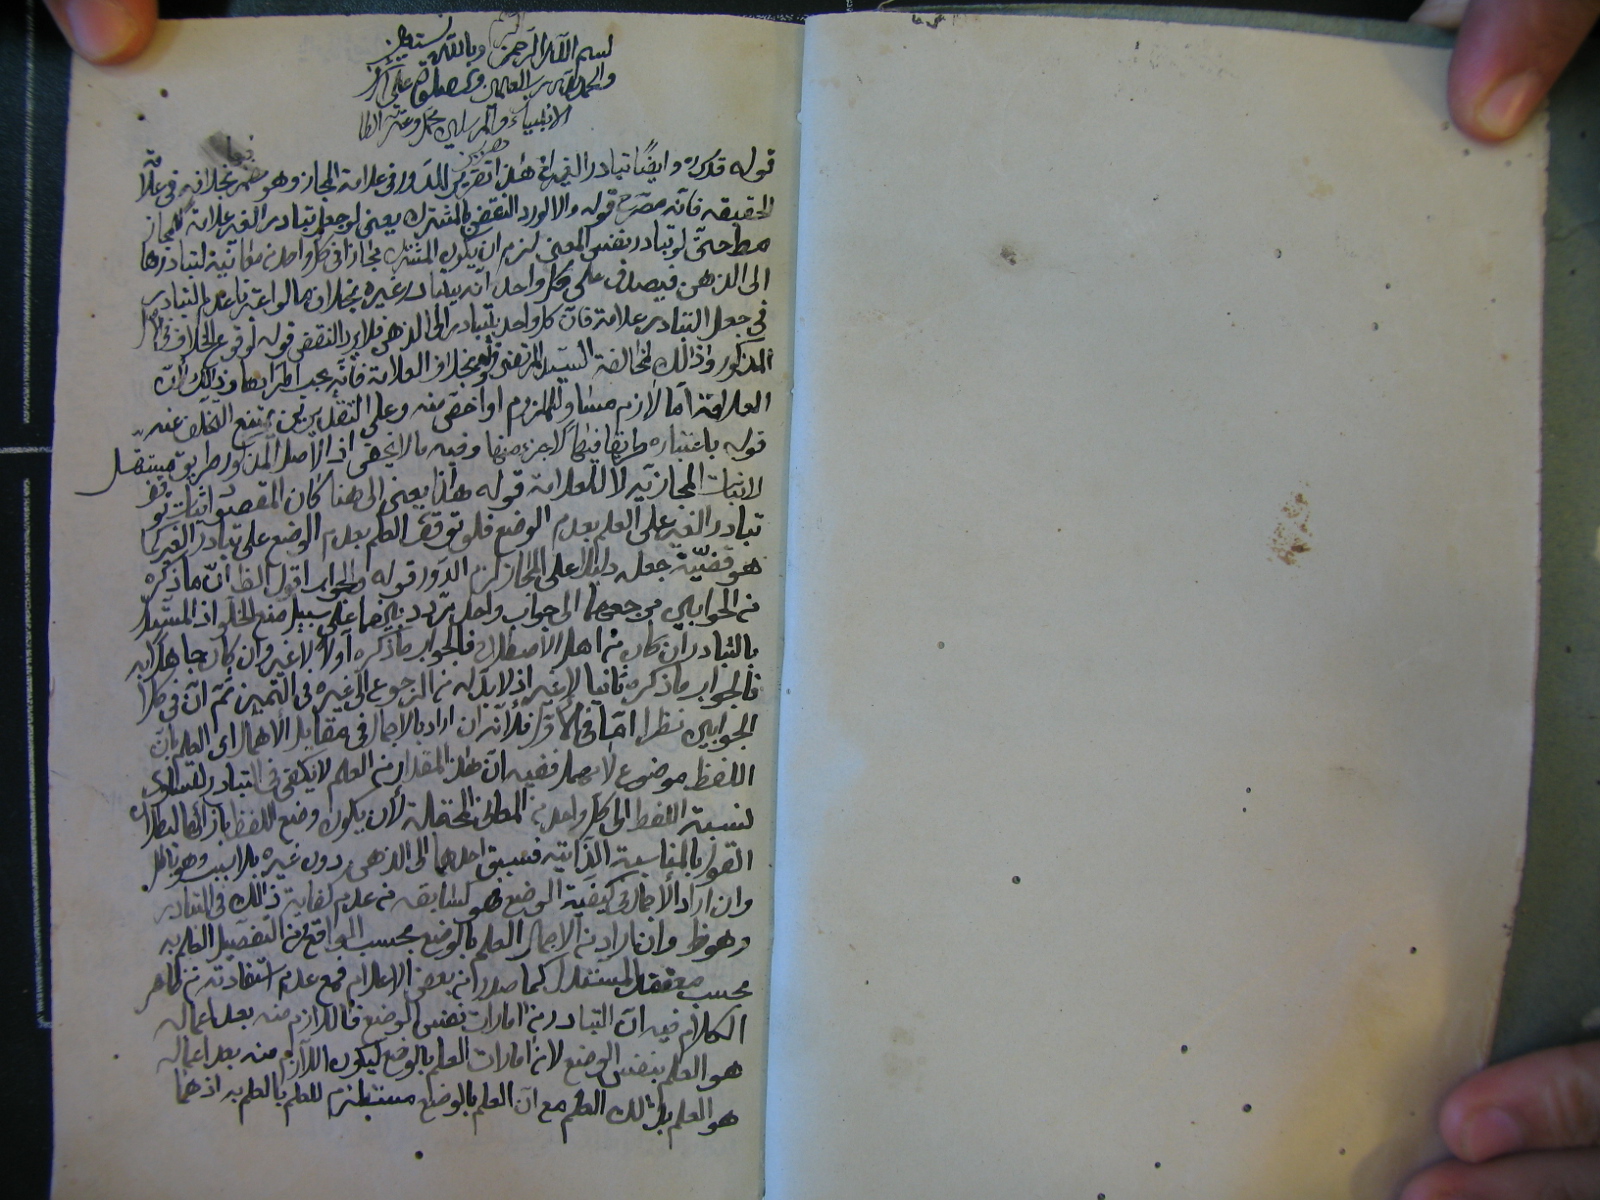 بسم الله الرحمن الرحيم وبالله نستعين
والحمد لله رب العالمين والصلوة على اكرم
الانبياء والمرسلين محمد وعترته الطا
هرين
قوله قدس وايضا تبادر الغير اه هذا تقرير للدور في علامة المجاز وهو مضمر بخلافه في علامة
الحقيقة فانه مصرح قوله والا لورد النقض بالمشترك يعنى لو جعل تبادر الغير علامة للمجاز
مط حتى لو تبادر نفس المعنى لزم ان يكون المشترك مجازا في كل واحد من معانيه لتبادرها
الى الذهن فيصدق على كل واحد انه يتبادر غيره بخلاف ما لو اعتبرنا عدم التبادر
في جعل التبادر علامة فان كل واحد يتبادر الى الذهن فلا يرد النقض قوله لوقوع الخلاف في
المذكور وذلك لمخالفة السيد المرتضى قوله بخلاف العلامة فانه يجب اطرادها وذلك ان
العلامة اما لازم مساو للملزوم او اخص منه وعلى التقديرين يمتنع التخلف عنه
قوله باعتباره طريقا فيها لا جزء منها وفيه ما لا يخفى اذ الاصل المذكور طريق مستقل
لاثبات المجازية لا للعلامة قوله هذا يعنى الى هنا كان المقصود اثبات توقف
تبادر الغير على العلم بعدم الوضع فلو توقف العلم بعدم الوضع على تبادر الغير كما
هو قضية جعله دليلا على المجاز لزم الدور قوله والجواب اقول الظ ان ما ذكره
من الجوابين مرجعهما الى جواب واحد مردد بينهما على سبيل منع الخلو اذ المستدل
بالتبادر ان كان من اهل الاصطلاح فالجواب ما ذكره اولا لا غير وان كان جاهلا به
فالجواب ما ذكره ثانيا لا غير اذ لا بد له من الرجوع الى غيره في التميز ثم ان في كلا
الجوابين نظرا اما في الاول فلانه ان اراد بالاجمال في مقابل الاهمال اى العلم بان
اللفظ موضوع لا مهمل ففيه ان هذا المقدار من العلم لا يكفى في التبادر لتساوى
نسبة اللفظ الى كل واحد من المعانى المحتملة لان يكون وضع اللفظ بازائها لبطلان
القول بالمناسبة الذاتية فسبق احدها الى الذهن دون غيره بلا سبب وهو باطل
وان اراد الاجمال في كيفية الوضع فهو كسابقه من عدم كفاية ذلك في التبادر
وهو ظ وان اراد من الاجمال العلم بالوضع بحسب الواقع من التفصيل العلم به
بحسب معتقد المستعمل كما صدر من بعض الاعلام فمع عدم استفادته من ظاهر
الكلام فيه ان التبادر من امارات نفس الوضع فاللازم منه بعد اعماله
هو العلم بنفس الوضع لا من امارات العلم بالوضع ليكون اللازم منه بعد اعماله
هو العلم بذلك العلم مع ان العلم بالوضع مستلزم للعلم بالعلم به اذ هما